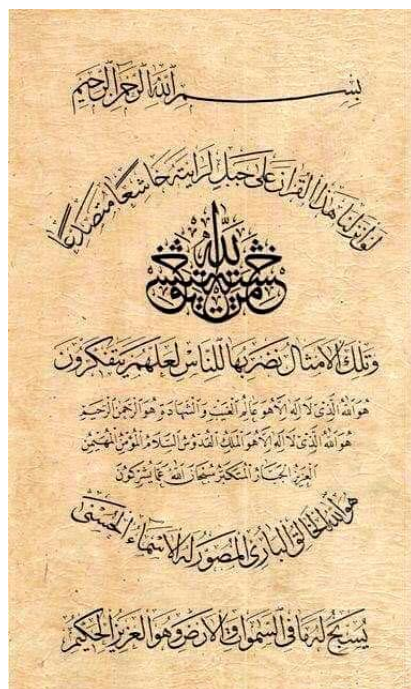 بسم الله الرحمن الرحيم
لو أنزلنا هذا القرآن على جبل لرأيته خاشعا متصدعا
من خشية الله
وتلك الأمثال نضربها للناس لعلهم يتفكرون
هو الله الذي لا إله إلا هو عالم الغيب والشهادة هو الرحمن الرحيم
هو الله الذي لا إله إلا هو الملك القدوس السلام المؤمن المهيمن
العزيز الجبار المتكبر سبحان الله عما يشركون
هو الله الخالق البارئ المصور له الأسماء الحسنى
يسبح له ما في السموات والأرض وهو العزيز الحكيم